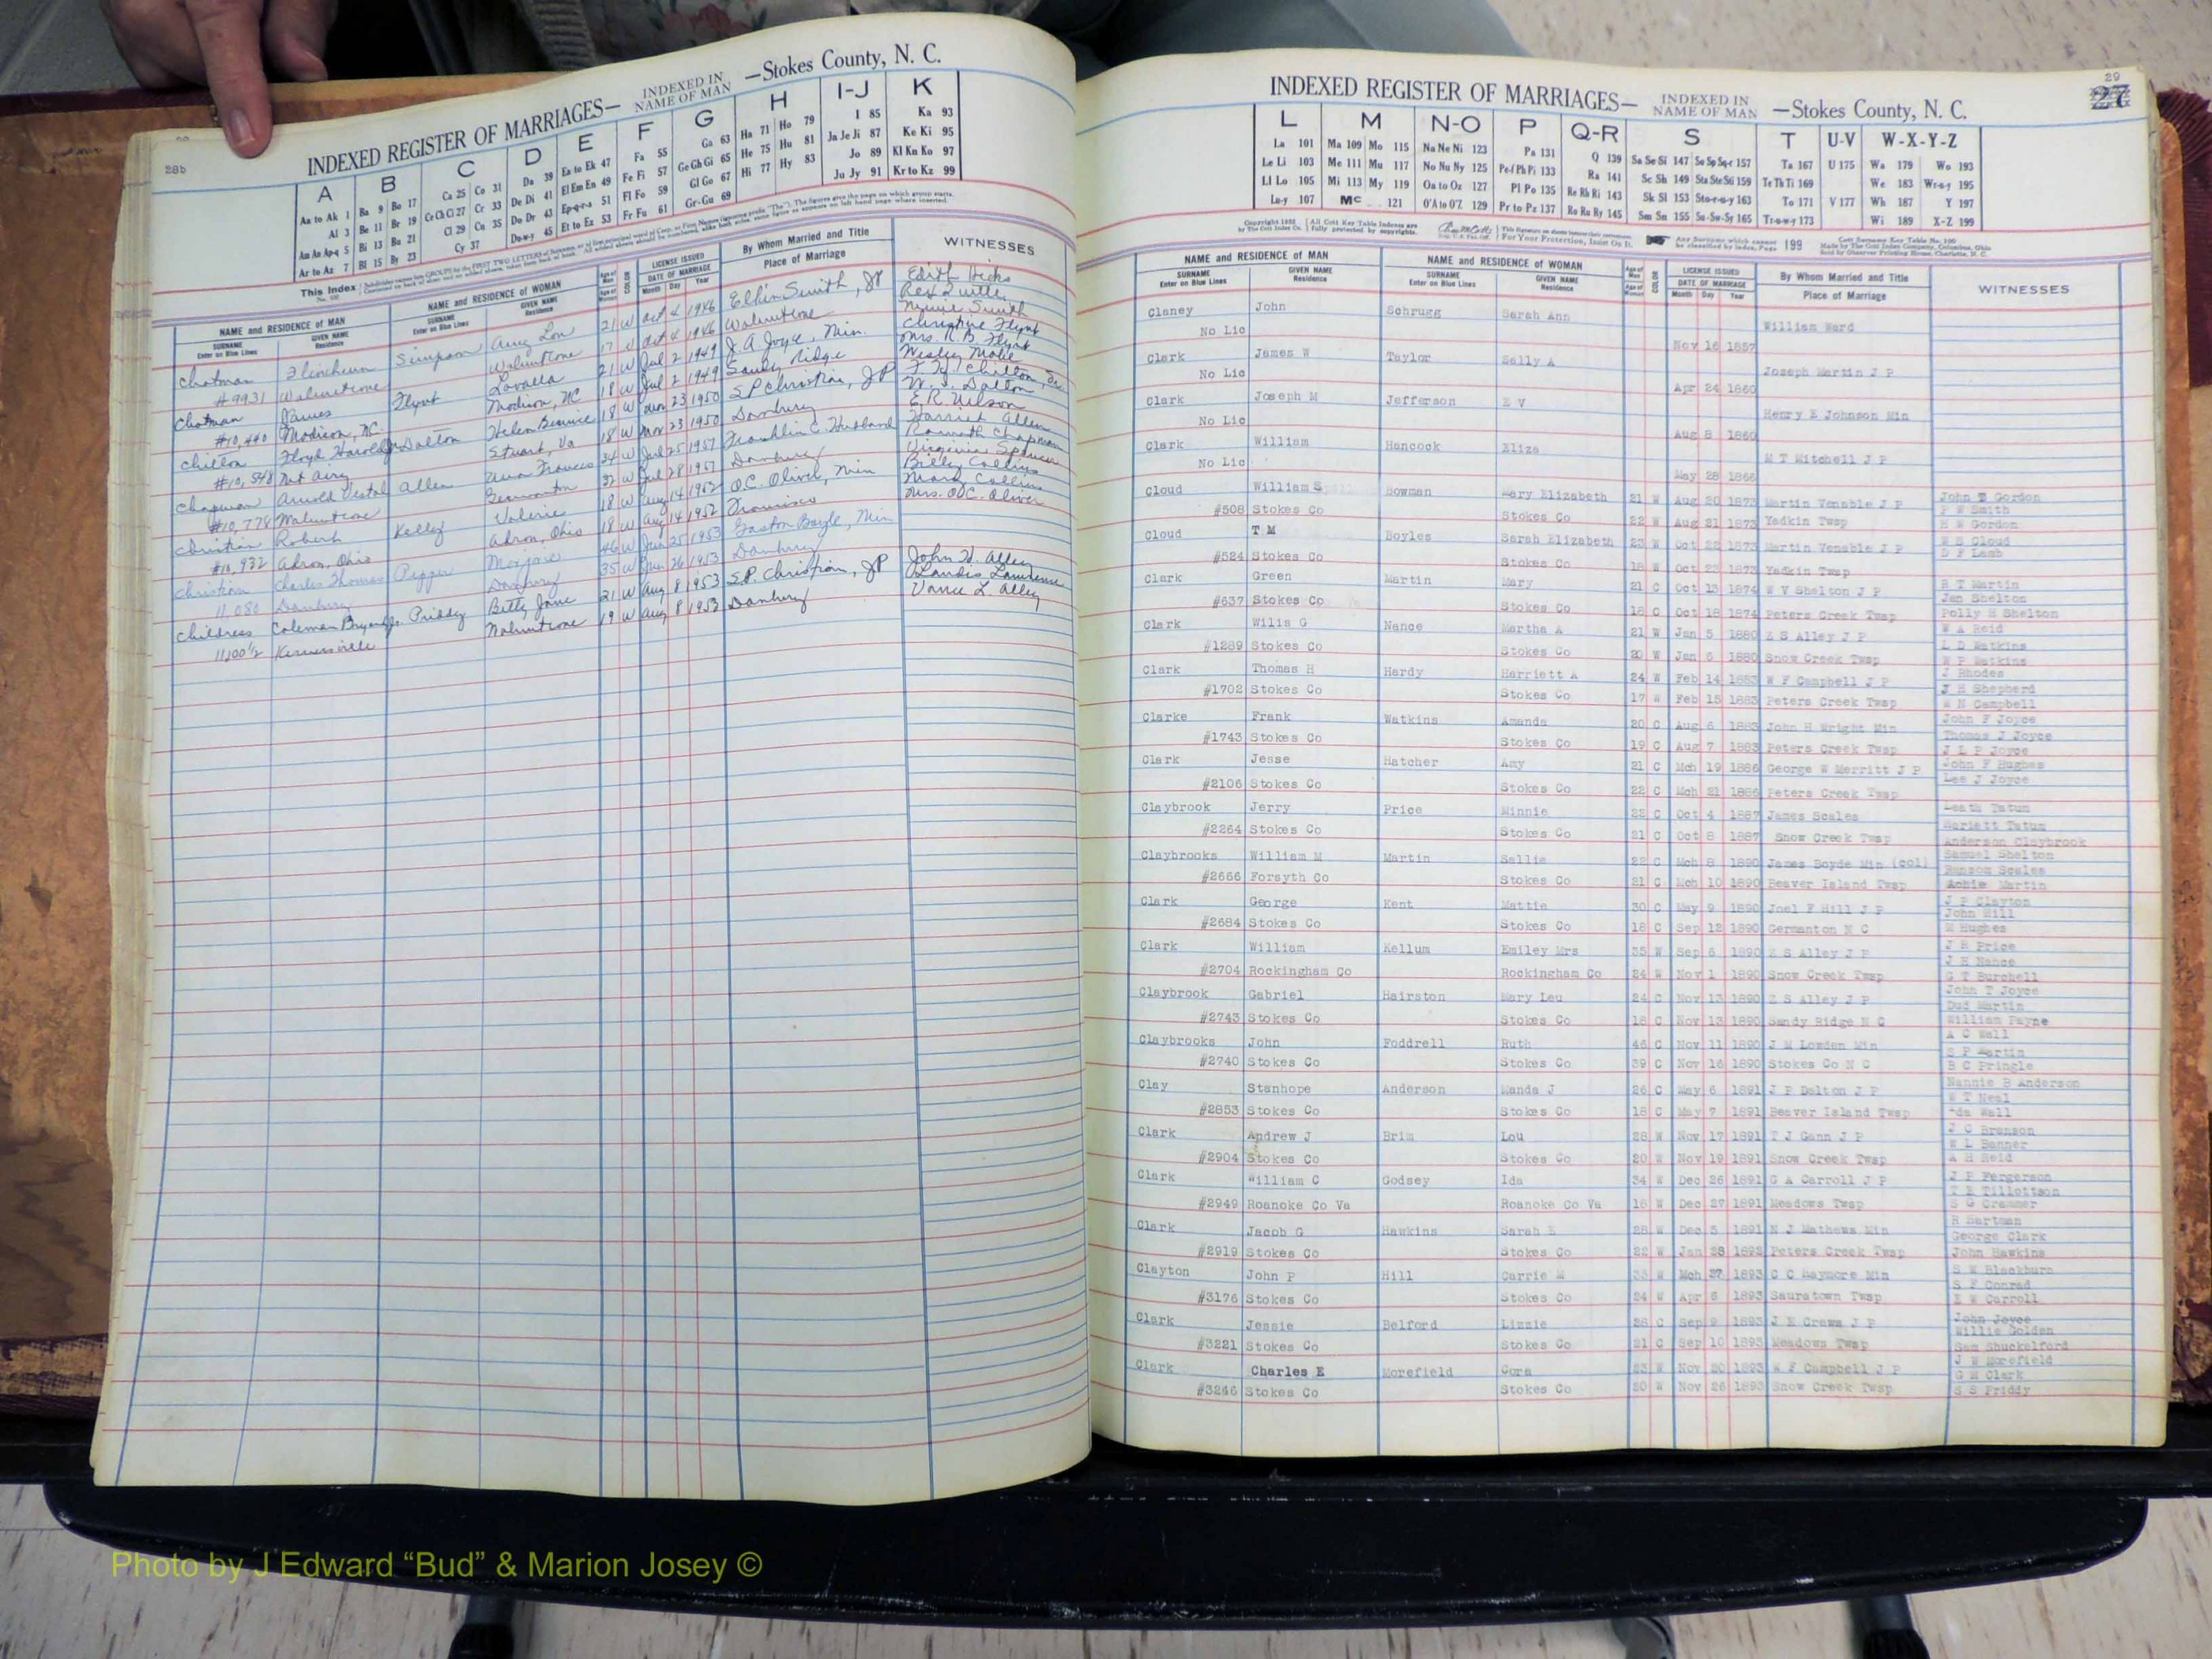 28b
INDEXED REGISTER OF MARRIAGES— INDEXED IN NAME OF MAN —Stokes County, N. C.
A B C D E F G H I-J K
Aa to Ak 1 Ba 9 Bo 17 Ca 25 Co 31 Da 39 Ea to Ek 47 Fa 55 Ga 63 Ha 71 Ho 79 I 85 Ka 93
Al 3 Be 11 Br 19 Ce Ch Ci 27 Cr 33 De Di 41 El Em En 49 Fe Fi 57 Ge Gh Gi 65 He 75 Hu 81 Ja Je Ji 87 Ke Ki 95
Am An Ap-q 5 Bi 13 Bu 21 Cl 29 Cu 35 Do Dr 43 Ep-q-r-s 51 Fl Fo 59 Gl Go 67 Hi 77 Hy 83 Jo 89 Kl Kn Ko 97
Ar to Az 7 Bl 15 By 23 Cy 37 Du-w-y 45 Et to Ez 53 Fr Fu 61 Gr-Gu 69 Ju Jy 91 Kr to Kz 99
This Index
NAME and RESIDENCE OF MAN NAME and RESIDENCE OF WOMAN LICENSE ISSUED By Whom Married and Title WITNESSES
SURNAME GIVEN NAME SURNAME GIVEN NAME COLOR DATE OF MARRIAGE Place of Marriage
Enter on Blue Lines Residence Enter on Blue Lines Residence Month Day Year
Chatman Simpson 21 W Oct 4 1946 Elkin Smith, JP Edith Hicks
#9931 Walnutcove Walnutcove 17 W Oct 4 1946 Walnutcove
Chatman James Flynt 21 W Jul 2 1949 J. A. Joyce, Min. Christine Flynt
#10,440 Madison, NC Madison, NC 18 W Jul 2 1949 Sandy Ridge Mrs. R. B. Flynt
Chilton Floyd Harold Jr Dalton Helen 18 W Nov 23 1950 S P Christian, JP
#10,548 Mt Airy Stuart, Va 18 W Nov 23 1950 Danbury W. J. Dalton
E. R. Wilson
Chapman Arnold Vestal Allen Frances 34 W Jul 25 1951 Franklin C. Harriet Allen
#10,778 Walnutcove Germanton 32 W Jul 28 1951 Danbury
Christian Robert Kelly Valerie 18 W Aug 14 1952 O.C. Oliver, Min Billy Collins
#10,932 Akron, Ohio Akron, Ohio 18 W Aug 14 1952 Francisco Mrs. O.C. Oliver
Christian Charles Thomas Pepper Marjorie 46 W Jun 25 1953 Gaston Boyle, Min
11,080 Danbury Danbury 35 W Jun 26 1953 Danbury
Childress Coleman Bryant Jr. Priddy Betty Jane 21 W Aug 8 1953 S.P. Christian, JP John W. Alley
11,100½ Kernersville Walnutcove 19 W Aug 8 1953 Danbury Landis Lawrence
Vance L. Alley
29
INDEXED REGISTER OF MARRIAGES— INDEXED IN NAME OF MAN —Stokes County, N. C.
L M N-O P Q-R S T U-V W-X-Y-Z
La 101 Ma 109 Mo 115 Na Ne Ni 123 Pa 131 Q 139 Sa Se Si 147 So Sp Sq-r 157 Ta 167 U 175 Wa 179 Wo 193
Le Li 103 Me 111 Mu 117 No Nu Ny 125 Pe-f Ph Pi 133 Ra 141 Sc Sh 149 Sta Ste Sti 159 Te Th Ti 169 We 183 Wr-u-y 195
Ll Lo 105 Mi 113 My 119 Oa to Oz 127 Pl Po 135 Re Rh Ri 143 Sk Sl 153 Sto-r-u-y 163 To 171 V 177 Wh 187 Y 197
Lu-y 107 Mc 121 O'A to O'Z 129 Pr to Pz 137 Ro Ru Ry 145 Sm Sn 155 Su-Sw-Sy 165 Tr-u-w-y 173 Wi 189 X-Z 199
NAME and RESIDENCE OF MAN NAME and RESIDENCE OF WOMAN LICENSE ISSUED By Whom Married and Title WITNESSES
SURNAME GIVEN NAME SURNAME GIVEN NAME COLOR DATE OF MARRIAGE Place of Marriage
Enter on Blue Lines Residence Enter on Blue Lines Residence Month Day Year
Claney John Schrugg Sarah Ann William Ward
No Lic Nov 16 1857
Clark James W Taylor Sally A Joseph Martin J P
No Lic Apr 24 1860
Clark Joseph M Jefferson E V Henry E Johnson Min
No Lic Aug 8 1860
Clark William Hancock Eliza M T Mitchell J P
No Lic May 28 1866
Cloud William S Bowman Mary Elizabeth 21 W Aug 20 1873 Martin Venable J P John T Gordon
P W Smith
#508 Stokes Co Stokes Co 22 W Aug 21 1873 Yadkin Twsp H W Gordon
Cloud T M Boyles Sarah Elizabeth 23 W Oct 22 1873 Martin Venable J P W S Cloud
D F Lamb
#524 Stokes Co Stokes Co 18 W Oct 23 1873 Yadkin Twsp
Clark Green Martin Mary 21 C Oct 13 1874 W V Shelton J P R T Martin
Jan Shelton
#637 Stokes Co Stokes Co 18 C Oct 18 1874 Peters Creek Twsp Polly H Shelton
Clark Wilis G Nance Martha A 21 W Jan 5 1880 Z S Alley J P W A Reid
L D Watkins
#1289 Stokes Co Stokes Co 20 W Jan 6 1880 Snow Creek Twsp W P Watkins
Clark Thomas H Hardy Harriett A 24 W Feb 14 1883 W F Campbell J P J Rhodes
J H Shepherd
#1702 Stokes Co Stokes Co 17 W Feb 15 1883 Peters Creek Twsp W N Campbell
Clarke Frank Watkins Amanda 20 C Aug 6 1883 John H Wright Min John F Joyce
Thomas J Joyce
#1743 Stokes Co Stokes Co 19 C Aug 7 1883 Peters Creek Twsp J L P Joyce
Clark Jesse Hatcher Amy 21 C Mch 19 1886 George W Merritt J P John F Hughes
Lee J Joyce
#2106 Stokes Co Stokes Co 22 C Mch 21 1886 Peters Creek Twsp
Claybrook Jerry Price Minnie 22 C Oct 4 1887 James Scales Leath Tatum
Mariett Tatum
#2264 Stokes Co Stokes Co 21 C Oct 8 1887 Snow Creek Twsp Anderson Claybrook
Claybrooks William M Martin Sallie 22 C Mch 8 1890 James Boyde Min (col) Samuel Shelton
Ransom Scales
#2666 Forsyth Co Stokes Co 21 C Mch 10 1890 Beaver Island Twsp Martin
Clark George Kent Mattie 30 C May 9 1890 Joel F Hill J P J P Clayton
John Hill
#2684 Stokes Co Stokes Co 18 C Sep 12 1890 Germanton N C M Hughes
Clark William Kellum Emiley Mrs 35 W Sep 6 1890 Z S Alley J P J H Price
J H Nance
#2704 Rockingham Co Rockingham Co 24 W Nov 1 1890 Snow Creek Twsp G T Burchell
Claybrook Gabriel Hairston Mary Lou 24 C Nov 13 1890 Z S Alley J P John T Joyce
Dud Martin
#2743 Stokes Co Stokes Co 16 C Nov 13 1890 Sandy Ridge N C William Payne
Claybrooks John Foddrell Ruth 46 C Nov 11 1890 J M Lowden Min A C Wall
S P Martin
#2740 Stokes Co Stokes Co 39 C Nov 16 1890 Stokes Co N C B C Pringle
Clay Stanhope Anderson Manda J 26 C May 6 1891 J P Dalton J P Nannie B Anderson
W T Neal
#2853 Stokes Co Stokes Co 18 C May 7 1891 Beaver Island Twsp Ida Wall
Clark Andrew J Brim Lou 28 W Nov 17 1891 T J Gann J P J C Brenson
W L Banner
#2904 Stokes Co Stokes Co 20 W Nov 19 1891 Snow Creek Twsp A H Reid
Clark William C Godsey Ida 34 W Dec 26 1891 G A Carroll J P J P Fergerson
T E Tillottson
#2949 Roanoke Co Va Roanoke Co Va 16 W Dec 27 1891 Meadows Twsp S G Crammer
Clark Jacob G Hawkins Sarah E 28 W Dec 5 1891 N J Mathews Min R Hartman
George Clark
#2919 Stokes Co Stokes Co 22 W Jan 28 1892 Peters Creek Twsp John Hawkins
Clayton John P Hill Carrie M 33 W Mch 27 1893 C C Haymore Min S W Blackburn
S F Conrad
#3176 Stokes Co Stokes Co 24 W Apr 6 1893 Sauratown Twsp E W Carroll
Clark Jessie Belford Lizzie 28 C Sep 9 1893 J E Craws J P John Joyce
Willie Golden
#3221 Stokes Co Stokes Co 21 C Sep 10 1893 Meadows Twsp Sam Shuckelford
Clark Charles E Morefield Cora 23 W Nov 20 1893 W F Campbell J P J W Morefield
G M Clark
#3246 Stokes Co Stokes Co 20 W Nov 26 1893 Snow Creek Twsp S S Priddy
Photo by J Edward “Bud” & Marion Josey ©